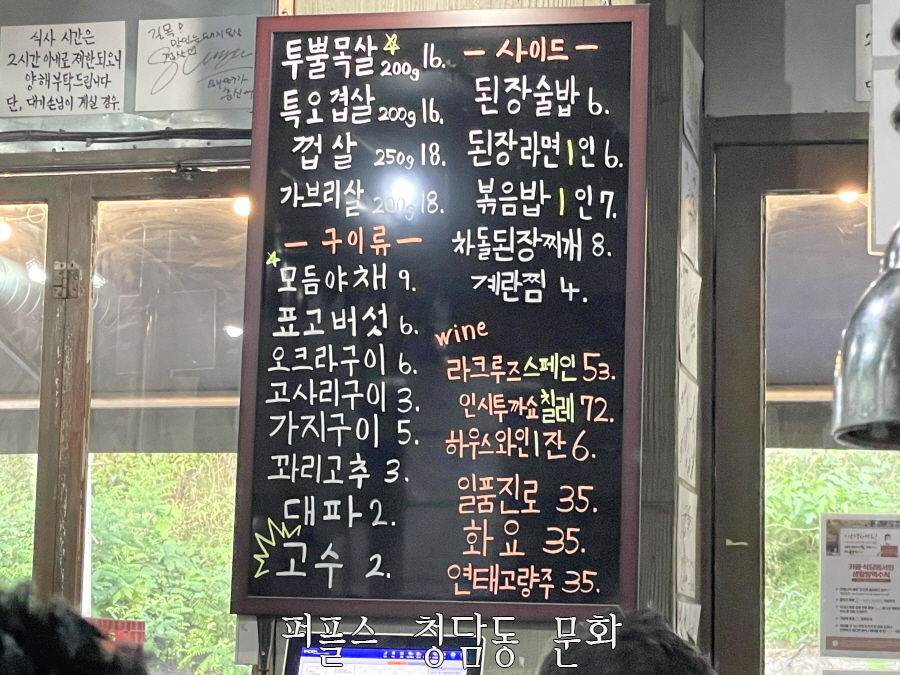 식사 시간은
2시간 이내로 제한되오니
양해부탁드립니다
단, 대기손님이 계실 경우.
투뿔목살 200g 16.
특오겹살 200g 16.
껍살 250g 18.
가브리살 200g 18.
- 구이류 -
모듬야채 9.
표고버섯 6.
오크라구이 6.
고사리구이 3.
가지구이 5.
꽈리고추 3.
대파 2.
고수 2.
- 사이드 -
된장술밥 6.
된장라면 1인 6.
볶음밥 1인 7.
차돌된장찌개 8.
계란찜 4.
wine
라크루즈스페인 53.
인시투까쇼칠레 72.
하우스와인1잔 6.
일품진로 35.
화요 35.
연태고량주 35.
퍼플스 청담동 문화